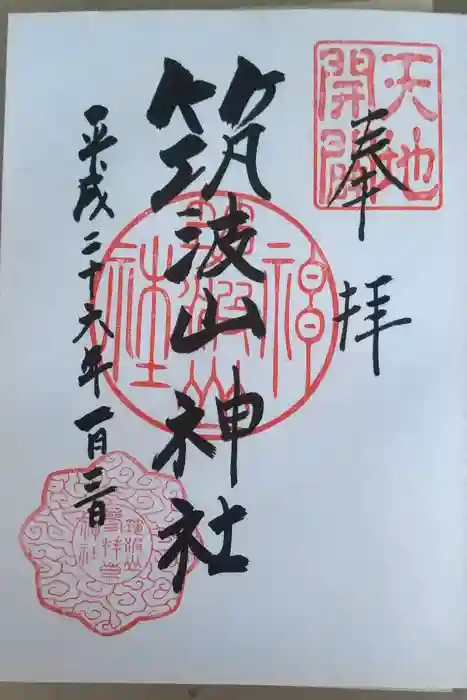 天地
開闢
奉拝
筑波山神社
平成二十六年一月三日